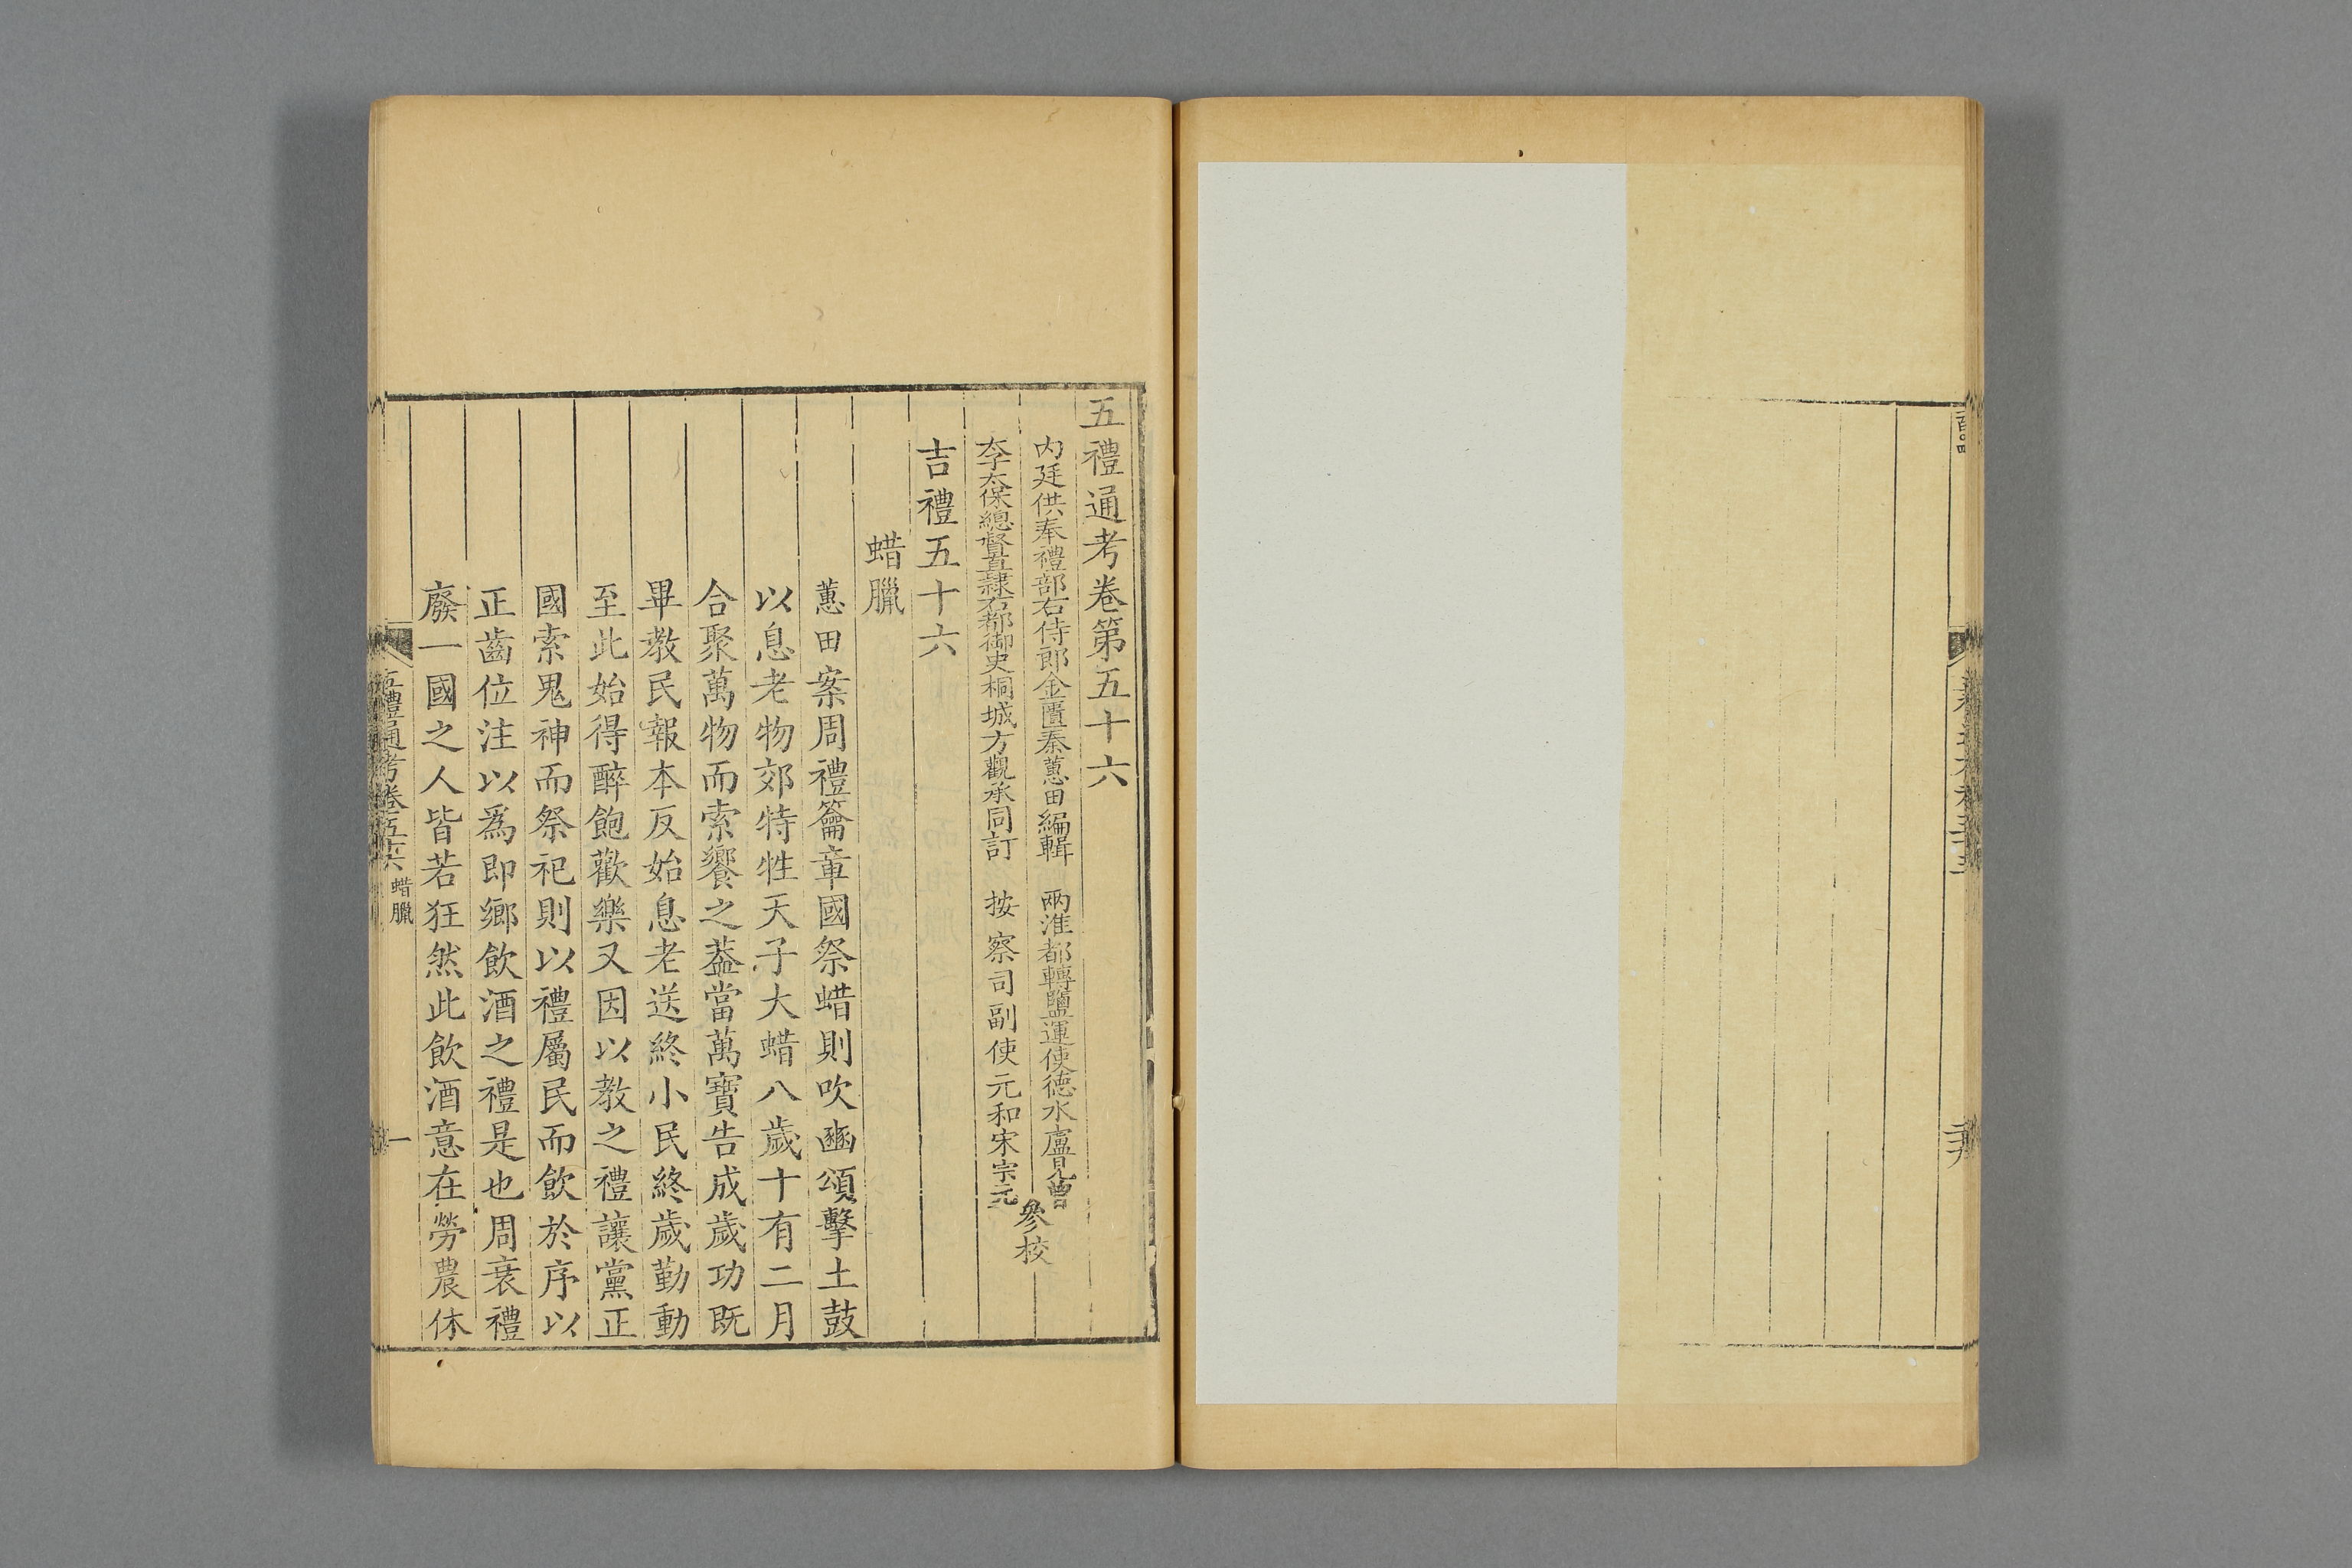 五禮通考卷第五十六
内廷供奉禮部右侍郎金匱秦蕙田編輯 兩淮都轉鹽運使德水盧見曾
太子太保總督直隸右都御史桐城方觀承同訂 按察司副使元和宋宗元
參校
吉禮五十六
蜡臘
蕙田案周禮籥章國祭蜡則吹豳頌擊土鼓
以息老物郊特牲天子大蜡八歲十有二月
合聚萬物而索饗之葢當萬寶告成歲功既
畢教民報本反始息老送終小民終歲勤動
至此始得醉飽歡樂又因以教之禮讓黨正
國索鬼神而祭祀則以禮屬民而飲於序以
正齒位注以爲即鄉飲酒之禮是也周衰禮
廢一國之人皆若狂然此飲酒意在勞農休
五禮通考卷五十六 蜡臘 一